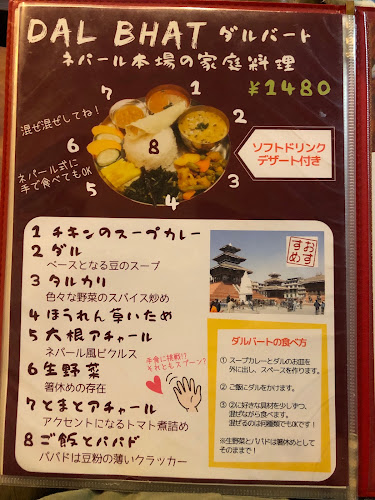 DAL BHAT ダルバート
ネパール本場の家庭料理
¥1480
混ぜ混ぜしてね!
ネパール式に
手で食べてもOK
1
2
3
4
5
6
7
8
ソフトドリンク
デザート付き
1 チキンのスープカレー
2 ダル
ベースとなる豆のスープ
3 タルカリ
色々な野菜のスパイス炒め
4 ほうれん草いため
5 大根アチャール
ネパール風ピクルス
6 生野菜
箸休めの存在
7 とまとアチャール
アクセントになるトマト煮詰め
8 ご飯とパパド
パパドは豆粉の薄いクラッカー
手食に挑戦!?
それともスプーン?
おすすめ
ダルバートの食べ方
① スープカレーとダルのお皿を
外に出し、スペースを作ります。
② ご飯にダルをかけます。
③ ②に好きな具材を少しずつ、
混ぜながら食べます。
混ぜるのは何種類でもOKです!
※生野菜とパパドは箸休めとして
そのまま!